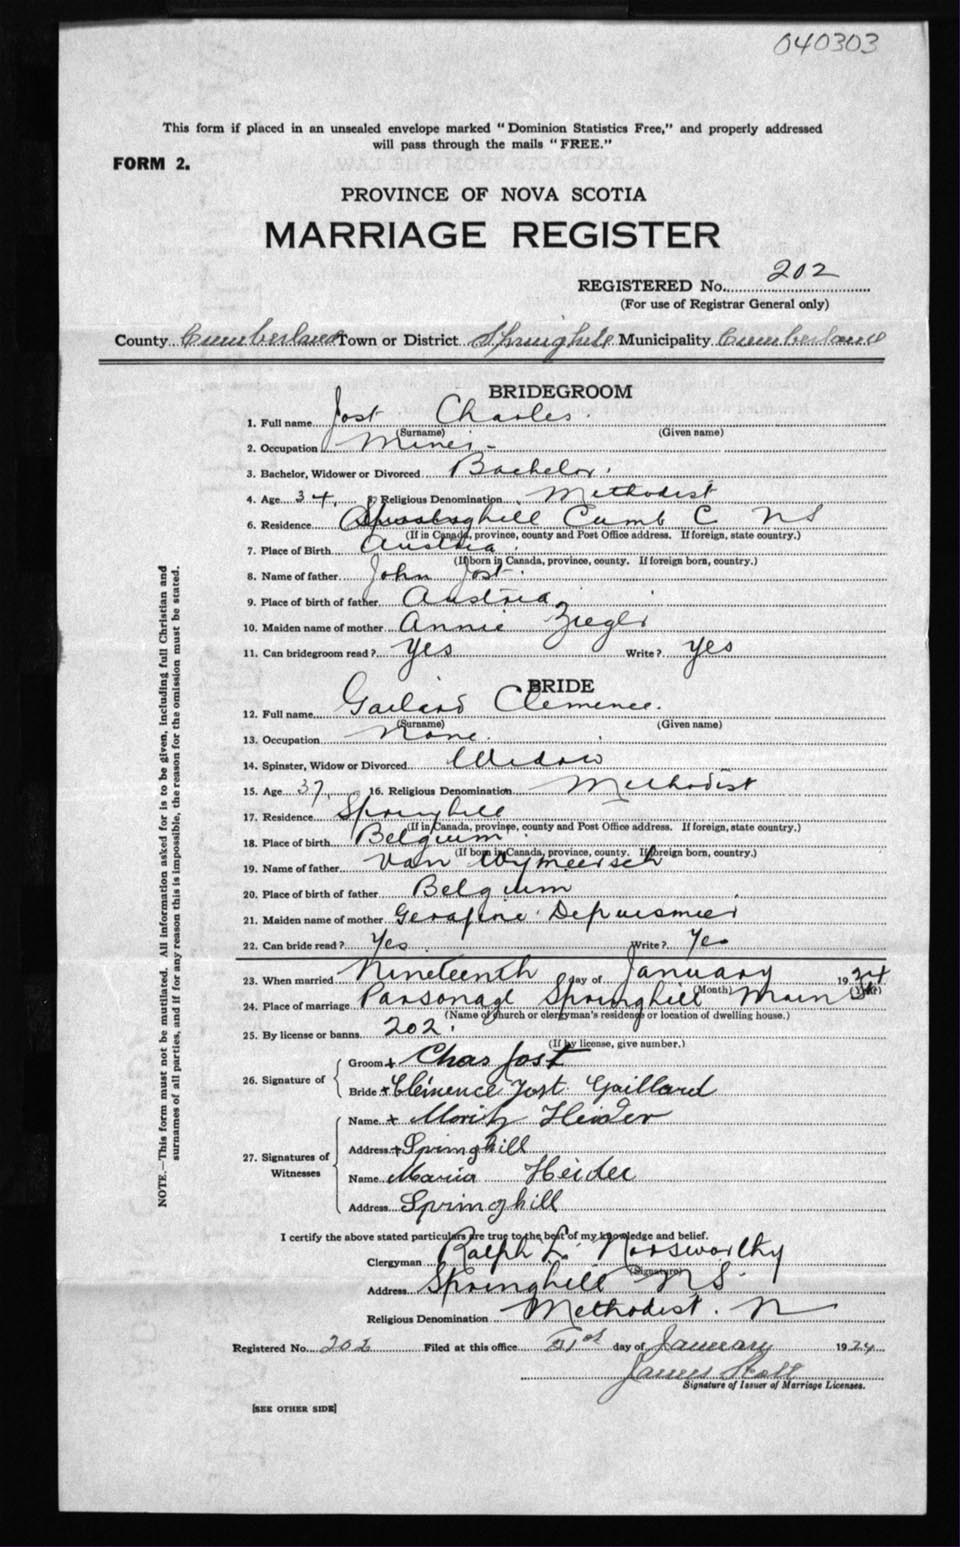 040303
This form if placed in an unsealed envelope marked "Dominion Statistics Free," and properly addressed
will pass through the mails "FREE."
FORM 2.
PROVINCE OF NOVA SCOTIA
MARRIAGE REGISTER
REGISTERED No. 202
(For use of Registrar General only)
County Cumberland Town or District Springhill Municipality Cumberland
BRIDEGROOM
1. Full name Jost Charles.
(Surname) (Given name)
2. Occupation Miner
3. Bachelor, Widower or Divorced Bachelor.
4. Age 34 5. Religious Denomination Methodist
6. Residence Springhill Cumb C NS
(If in Canada, province, county and Post Office address. If foreign, state country.)
7. Place of Birth Austria.
(If born in Canada, province, county. If foreign born, country.)
8. Name of father John Jost.
9. Place of birth of father Austria
10. Maiden name of mother Annie Ziegler
11. Can bridegroom read? Yes Write? Yes
BRIDE
12. Full name Gailard Clemence.
(Surname) (Given name)
13. Occupation None.
14. Spinster, Widow or Divorced Widow
15. Age 37 16. Religious Denomination Methodist
17. Residence Springhill
(If in Canada, province, county and Post Office address. If foreign, state country.)
18. Place of Birth Belgium.
(If born in Canada, province, county. If foreign born, country.)
19. Name of father Van Wymeersch
20. Place of birth of father Belgium
21. Maiden name of mother
22. Can bride read? Yes. Write? Yes
23. When married Nineteenth day of January 1924
(Month) (Year)
24. Place of marriage Parsonage Springhill Main St
(Name of church or clergyman's residence or location of dwelling house.)
25. By license or banns 202.
(If by license, give number.)
26. Signature of
Groom + Chas Jost
Bride + Clémence Jost Gaillard
27. Signatures of
Witnesses
Name + Moritz Heider
Address + Springhill
Name Maria Heider
Address Springhill
I certify the above stated particulars are true to the best of my knowledge and belief.
Clergyman Ralph L. Norsworthy
(Signature)
Address Springhill NS.
Religious Denomination Methodist.
Registered No. 202 Filed at this office 21st day of January 1924
James
Signature of Issuer of Marriage Licenses.
[SEE OTHER SIDE]
NOTE.—This form must not be mutilated. All information asked for is to be given, including full Christian and
surnames of all parties, and if for any reason this is impossible, the reason for the omission must be stated.